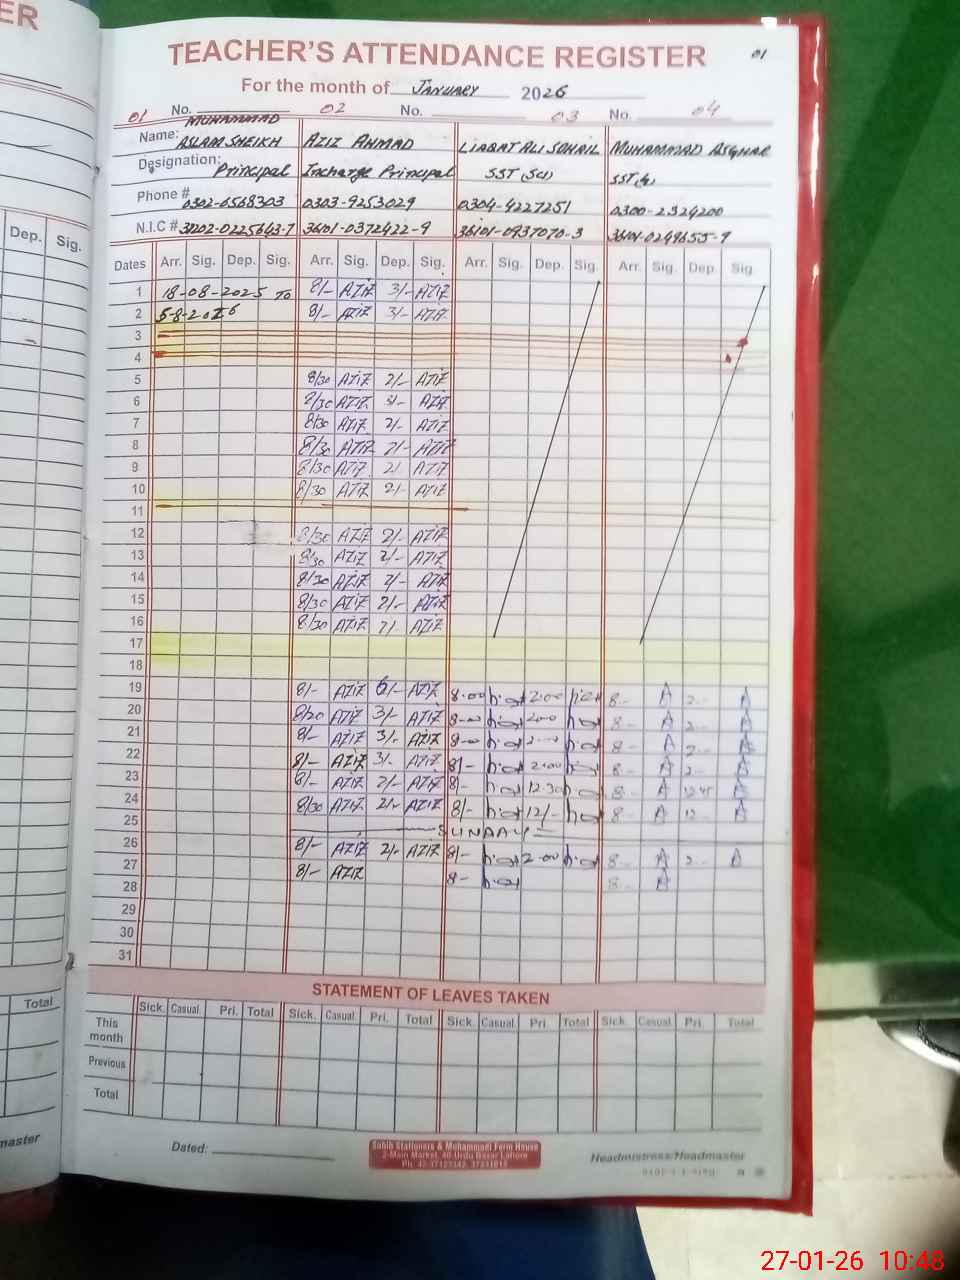 ER
TEACHER'S ATTENDANCE REGISTER
01
For the month of JANUARY 2026
01 No. 02 No. 03 No. 04
Name: MUHAMMAD ASLAM SHEIKH AZIZ AHMAD LIAQAT ALI SOHAIL MUHAMMAD ASGHAR
Designation: Principal Incharge Principal SST (Sci) SST(G)
Phone # 0302-0568303 0303-9253029 0304-4227251 0300-2324200
N.I.C # 31202-0225643-7 36101-0372422-9 36101-0937070-3 36101-0249655-9
Dep. Sig.
Dates Arr. Sig. Dep. Sig. Arr. Sig. Dep. Sig. Arr. Sig. Dep. Sig. Arr. Sig. Dep. Sig.
1 18-08-2025 TO 8/- AZIZ 3/- AZIZ
2 5-8-2026 8/- AZIZ 3/- AZIZ
3
4
5 8/30 AZIZ 2/- AZIZ
6 8/30 AZIZ 3/- AZIZ
7 8/30 AZIZ 2/- AZIZ
8 8/30 AZIZ 2/- AZIZ
9 8/30 AZIZ 2/ AZIZ
10 8/30 AZIZ 2/- AZIZ
11
12 8/30 AZIZ 2/- AZIZ
13 8/30 AZIZ 2/- AZIZ
14 8/30 AZIZ 2/- AZIZ
15 8/30 AZIZ 2/- AZIZ
16 8/30 AZIZ 2/- AZIZ
17
18
19 8/- AZIZ 6/- AZIZ 8.00 2.00 8- A 2- A
20 8/30 AZIZ 3/- AZIZ 8-00 2.00 8- A 2- A
21 8/- AZIZ 3/- AZIZ 8-00 2- 8- A 2- A
22 8/- AZIZ 3/- AZIZ 8/- 2.00 8- A 2- A
23 8/- AZIZ 2/- AZIZ 8/- 12.30 8- A 12.45 A
24 8/30 AZIZ 2/- AZIZ 8/- 12/- 8- A 12- A
25 SUNDAY
26 8/- AZIZ 2/- AZIZ 8/- 2-00 8- A 2- A
27 8/- AZIZ 8- 8- A
28
29
30
31
Total
STATEMENT OF LEAVES TAKEN
Sick. Casual. Pri. Total Sick. Casual. Pri. Total Sick. Casual. Pri. Total Sick. Casual. Pri. Total
This month
Previous
Total
master
Dated:
Sahib Stationers & Mohammadi Form House
2-Main Market, 40-Urdu Bazar Lahore
Headmistress/Headmaster
27-01-26 10:48